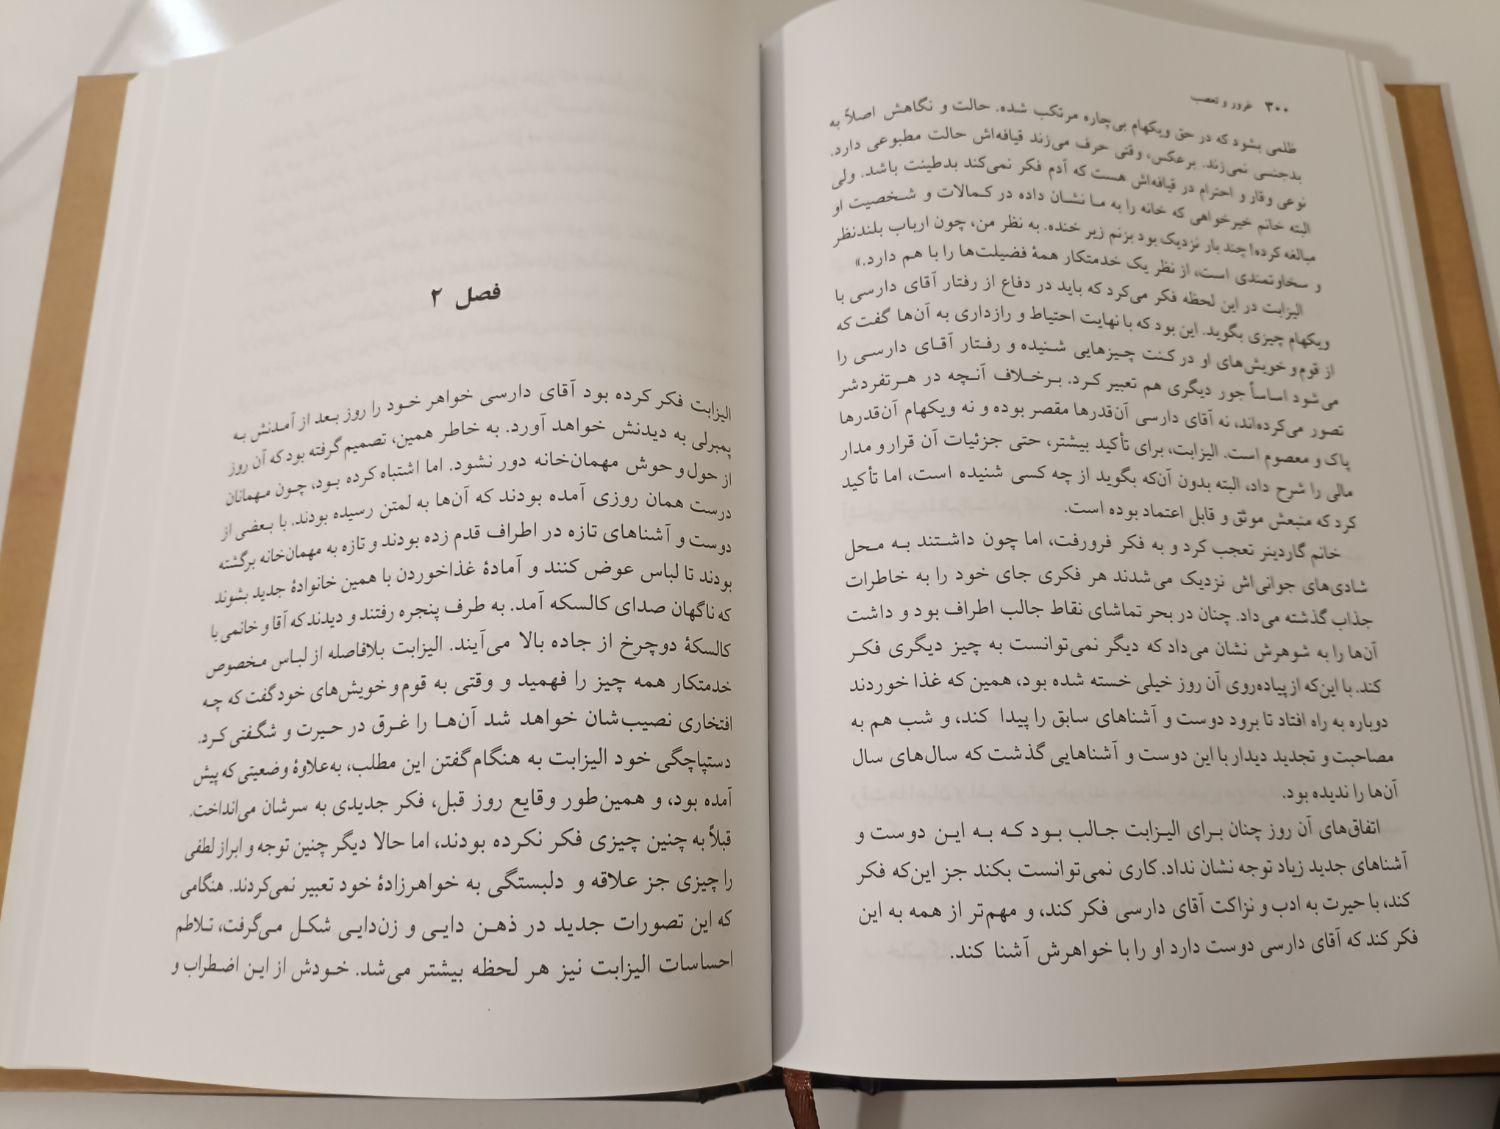 ۳۰۰ غرور و تعصب
ظلمی بشود که در حق ویکهام بی‌چاره مرتکب شده. حالت و نگاهش اصلاً به
بدجنسی نمی‌زند. برعکس، وقتی حرف می‌زند قیافه‌اش حالت مطبوعی دارد.
نوعی وقار و احترام در قیافه‌اش هست که آدم فکر نمی‌کند بدطینت باشد. ولی
البته خانم خیرخواهی که خانه را به ما نشان داده در کمالات و شخصیت او
مبالغه کرده! چند بار نزدیک بود بزنم زیر خنده. به نظر من، چون ارباب بلندنظر
و سخاوتمندی است، از نظر یک خدمتکار همهٔ فضیلت‌ها را با هم دارد.»
الیزابت در این لحظه فکر می‌کرد که باید در دفاع از رفتار آقای دارسی با
ویکهام چیزی بگوید. این بود که با نهایت احتیاط و رازداری به آن‌ها گفت که
از قوم و خویش‌های او در کنت چیزهایی شنیده و رفتار آقای دارسی را
می‌شود اساساً جور دیگری هم تعبیر کرد. برخلاف آنچه در هرتفردشر
تصور می‌کرده‌اند، نه آقای دارسی آن‌قدرها مقصر بوده و نه ویکهام آن‌قدرها
پاک و معصوم است. الیزابت، برای تأکید بیشتر، حتی جزئیات آن قرار و مدار
مالی را شرح داد، البته بدون آن‌که بگوید از چه کسی شنیده است، اما تأکید
کرد که منبعش موثق و قابل اعتماد بوده است.
خانم گاردینر تعجب کرد و به فکر فرورفت، اما چون داشتند به محل
شادی‌های جوانی‌اش نزدیک می‌شدند هر فکری جای خود را به خاطرات
جذاب گذشته می‌داد. چنان در بحر تماشای نقاط جالب اطراف بود و داشت
آن‌ها را به شوهرش نشان می‌داد که دیگر نمی‌توانست به چیز دیگری فکر
کند. با این‌که از پیاده‌روی آن روز خیلی خسته شده بود، همین که غذا خوردند
دوباره به راه افتاد تا برود دوست و آشناهای سابق را پیدا کند، و شب هم به
مصاحبت و تجدید دیدار با این دوست و آشناهایی گذشت که سال‌های سال
آن‌ها را ندیده بود.
اتفاق‌های آن روز چنان برای الیزابت جالب بود که به این دوست و
آشناهای جدید زیاد توجه نشان نداد. کاری نمی‌توانست بکند جز این‌که فکر
کند، با حیرت به ادب و نزاکت آقای دارسی فکر کند، و مهم‌تر از همه به این
فکر کند که آقای دارسی دوست دارد او را با خواهرش آشنا کند.
فصل ۲
الیزابت فکر کرده بود آقای دارسی خواهر خود را روز بعد از آمدنش به
پمبرلی به دیدنش خواهد آورد. به خاطر همین، تصمیم گرفته بود که آن روز
از حول و حوش مهمان‌خانه دور نشود. اما اشتباه کرده بود، چون مهمانان
درست همان روزی آمده بودند که آن‌ها به لمتن رسیده بودند. با بعضی از
دوست و آشناهای تازه در اطراف قدم زده بودند و تازه به مهمان‌خانه برگشته
بودند تا لباس عوض کنند و آمادهٔ غذاخوردن با همین خانوادهٔ جدید بشوند
که ناگهان صدای کالسکه آمد. به طرف پنجره رفتند و دیدند که آقا و خانمی با
کالسکهٔ دوچرخ از جاده بالا می‌آیند. الیزابت بلافاصله از لباس مخصوص
خدمتکار همه چیز را فهمید و وقتی به قوم و خویش‌های خود گفت که چه
افتخاری نصیب‌شان خواهد شد آن‌ها را غرق در حیرت و شگفتی کرد.
دستپاچگی خود الیزابت به هنگام گفتن این مطلب، به‌علاوهٔ وضعیتی که پیش
آمده بود، و همین‌طور وقایع روز قبل، فکر جدیدی به سرشان می‌انداخت.
قبلاً به چنین چیزی فکر نکرده بودند، اما حالا دیگر چنین توجه و ابراز لطفی
را چیزی جز علاقه و دلبستگی به خواهرزادهٔ خود تعبیر نمی‌کردند. هنگامی
که این تصورات جدید در ذهن دایی و زن‌دایی شکل می‌گرفت، تلاطم
احساسات الیزابت نیز هر لحظه بیشتر می‌شد. خودش از این اضطراب و